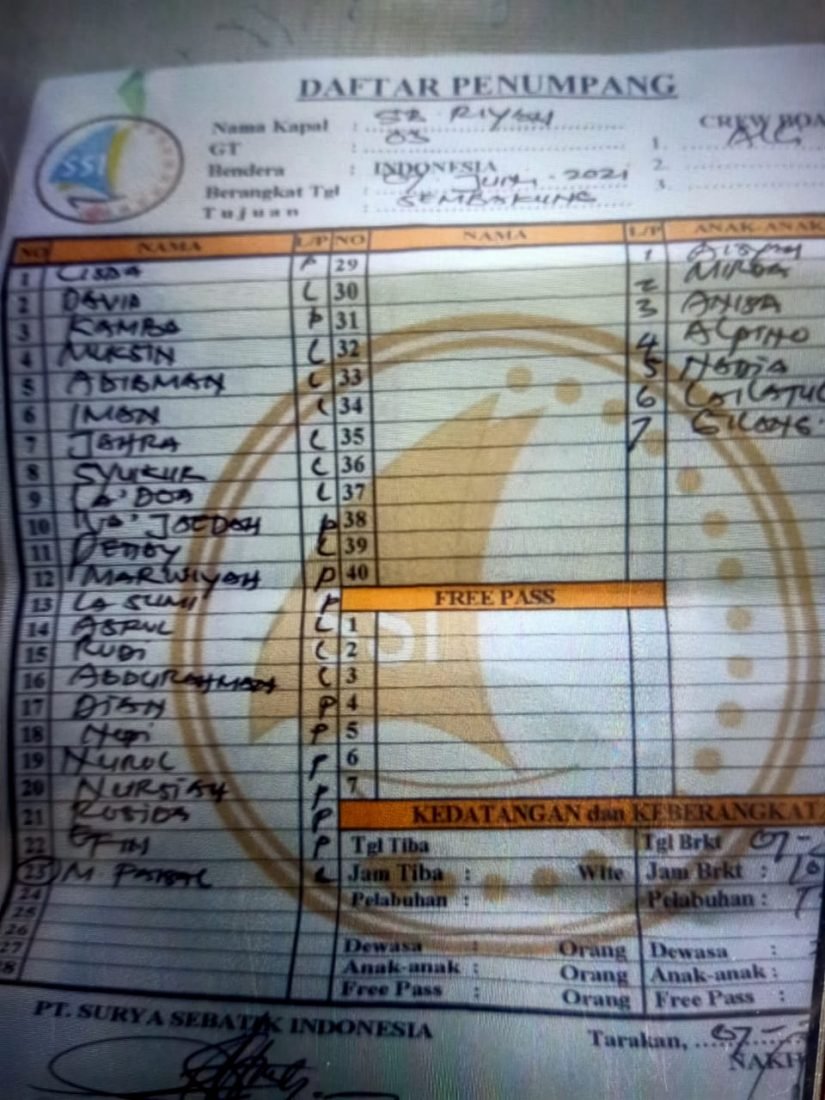 DAFTAR PENUMPANG
SSI
Nama Kapal : SB. RIYAN
GT : 03
Bendera : INDONESIA
Berangkat Tgl : 07 JUNI - 2021
Tujuan : SEMBAKUNG
CREW BOA
1.
2.
3.
NO NAMA L/P NO NAMA L/P ANAK-ANAK
1 P 29 1
2 DAVID L 30 2 MIRDA
3 KAMBA P 31 3 ANISA
4 MUKSIN L 32 4 ALPINO
5 ADIBMAN L 33 5 NADIA
6 IMAN L 34 6 LAILATUL
7 JAHRA L 35 7 GILANG
8 SYUKUR L 36
9 LA'DOA L 37
10 P 38
11 DEDDY L 39
12 MARWIYAH P 40
13 LA SUMI P FREE PASS
14 ASRUL L 1
15 RUDI L 2
16 ABDURAHMAN L 3
17 DIAN P 4
18 P 5
19 NURUL P 6
20 NURSIAH P 7
21 ROSIDA P KEDATANGAN dan KEBERANGKAT
22 P Tgl Tiba Tgl Brkt 07-
23 M. L Jam Tiba : Wite Jam Brkt : 10
24 Pelabuhan : Pelabuhan : T
25
26
27 Dewasa : Orang Dewasa :
28 Anak-anak : Orang Anak-anak :
Free Pass : Orang Free Pass :
PT. SURYA SEBATIK INDONESIA
Tarakan, 07-
NAKH